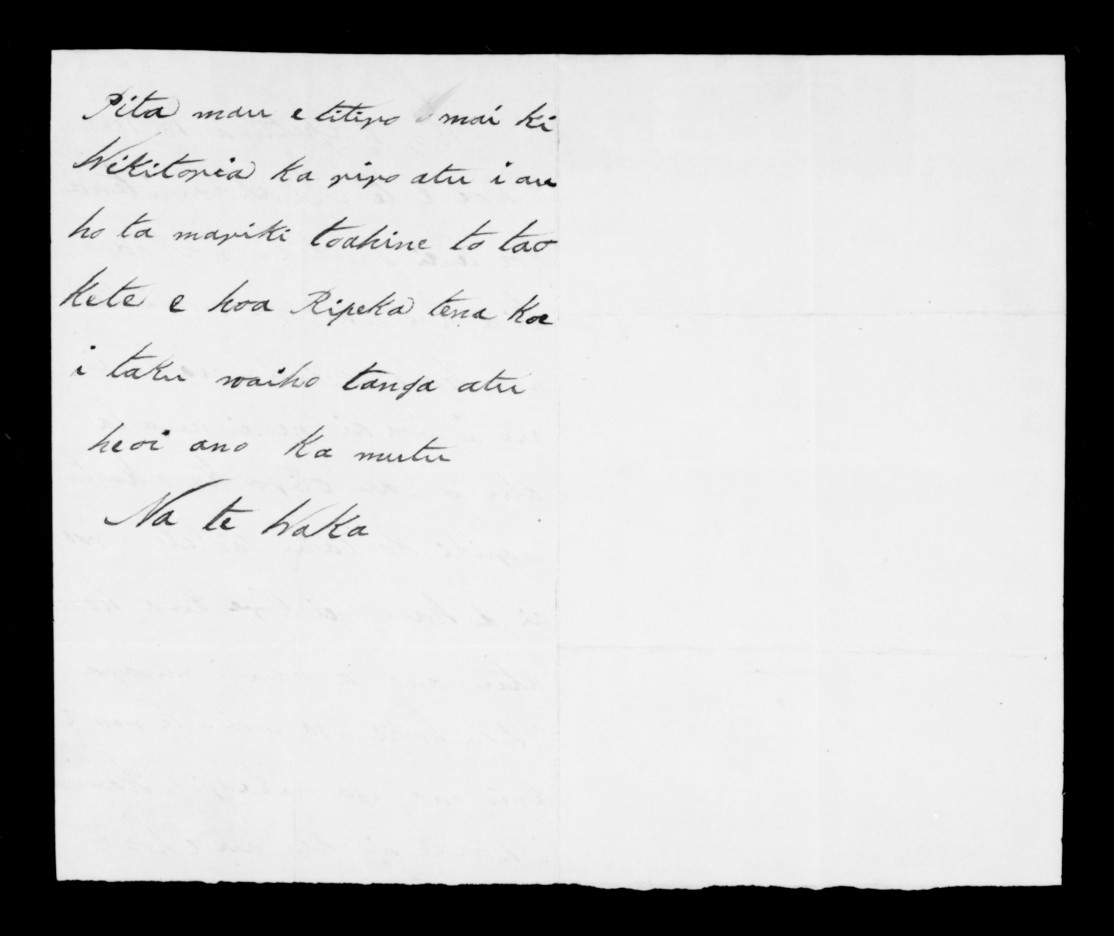 Pita mau e titiro mai ki
Wikitoria ka riro atu i au
ho ta mariki toahine to tao
kete e hoa Ripeka tena koe
i taku waiho tanga atu
heoi ano ka mutu
Na te Waka